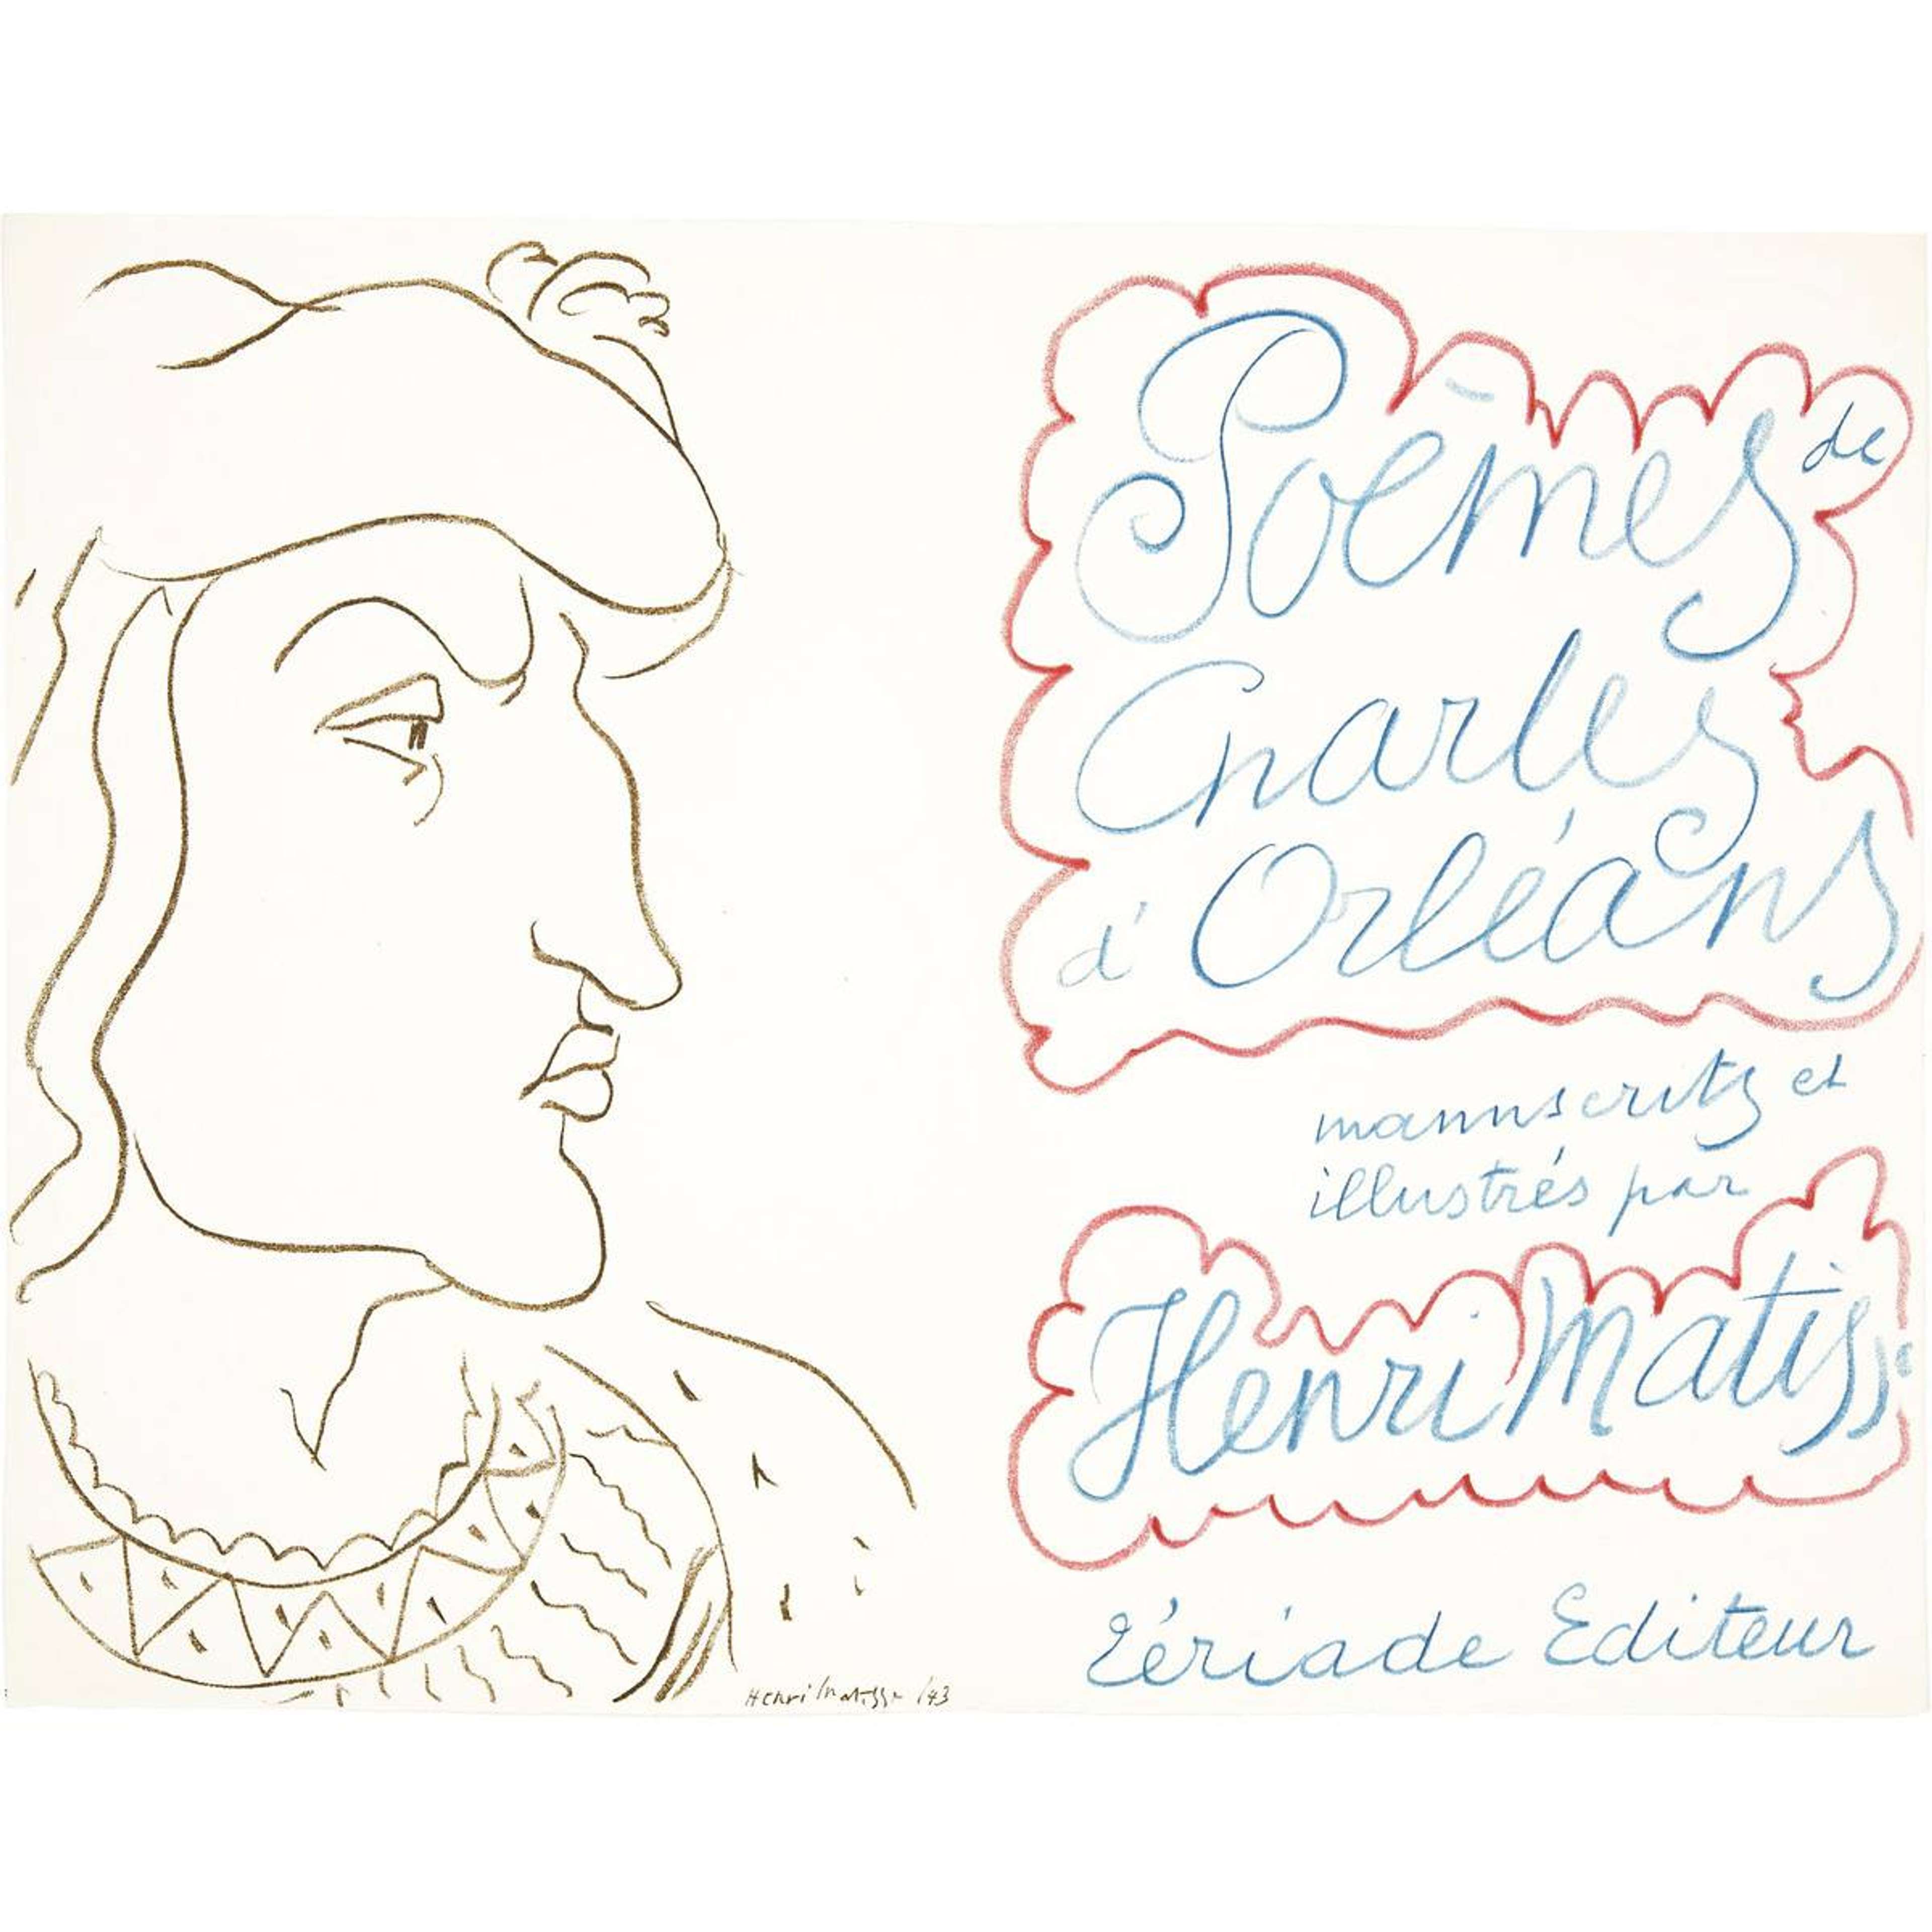 Henri Matisse /43
Poèmes de
Charles
d'Orléans
manuscrits et
illustrés par
Henri Matisse
Tériade Editeur